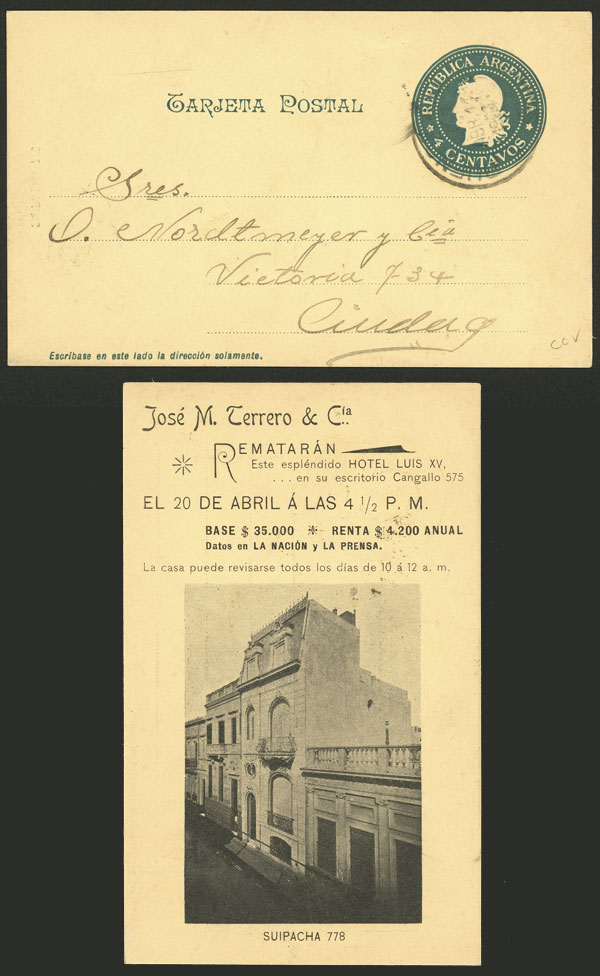 TARJETA POSTAL
REPUBLICA ARGENTINA
4 CENTAVOS
Sres.
O. Nordtmeyer y Cía
Victoria 734
Ciudad
Escríbase en este lado la dirección solamente.
José M. Terrero & Cía.
REMATARÁN
Este espléndido HOTEL LUIS XV,
... en su escritorio Cangallo 575
EL 20 DE ABRIL Á LAS 4 1/2 P. M.
BASE $ 35.000 RENTA $ 4.200 ANUAL
Datos en LA NACIÓN y LA PRENSA.
La casa puede revisarse todos los días de 10 á 12 a. m.
SUIPACHA 778